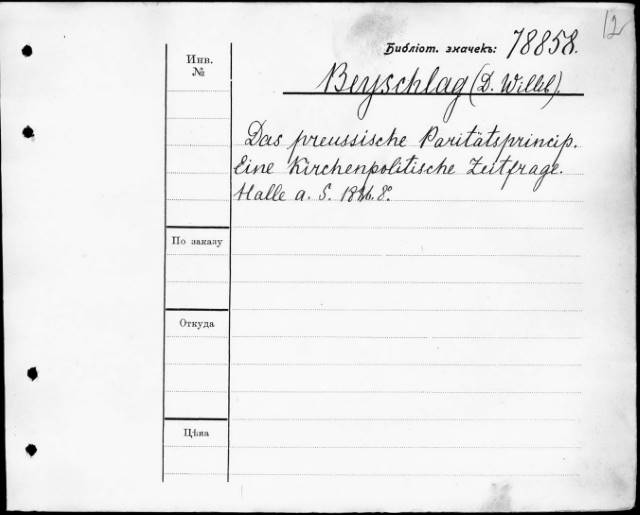 12
Библіот. значекъ: 78858.
Инв.
№
Beyschlag (D. Willib).
Das preussische Paritätsprincip.
Eine Kirchenpolitische Zeitfrage.
Halle a. S. 8°.
По заказу
Откуда
Цѣна